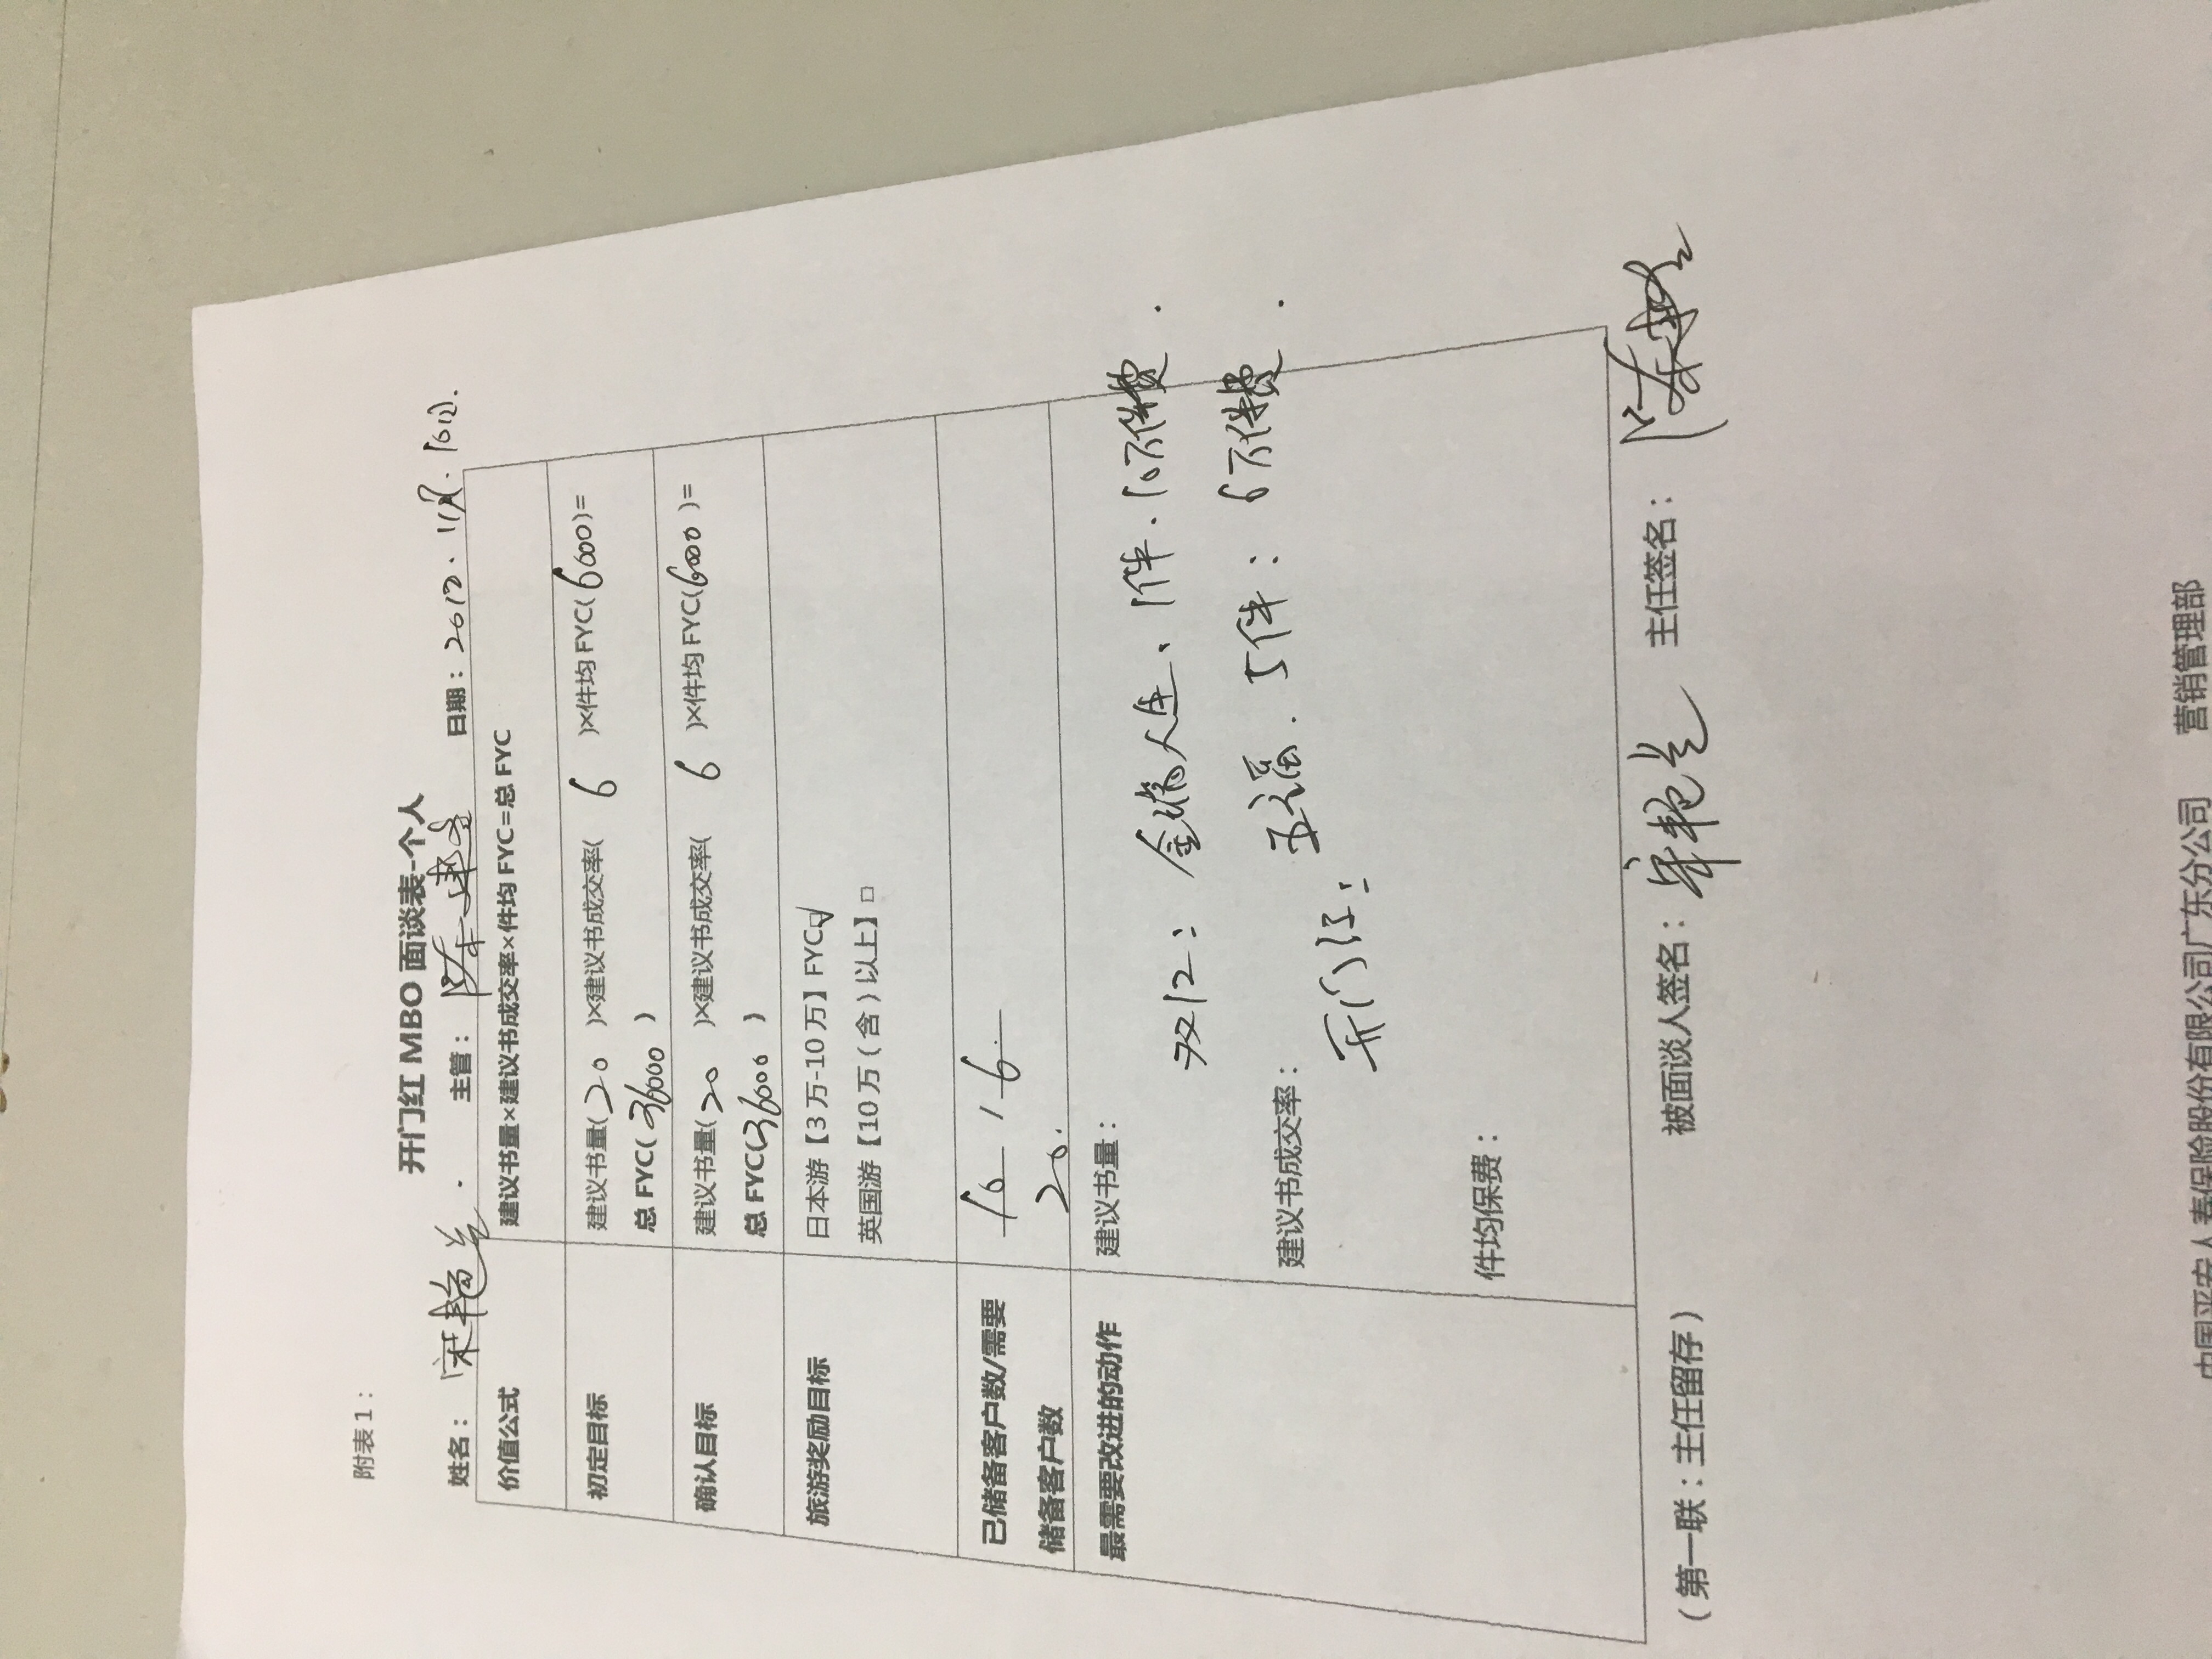 附表1：
开门红 MBO 面谈表-个人
姓名：宋艳兰. 主管：陈 日期：2017.11月.16日.
价值公式 建议书量×建议书成交率×件均 FYC=总 FYC
初定目标 建议书量(20 )×建议书成交率( 6 )×件均 FYC(6000)=
总 FYC(36000 )
确认目标 建议书量(20 )×建议书成交率( 6 )×件均 FYC(6000 )=
总 FYC(36000 )
旅游奖励目标 日本游【3万-10万】FYC□√
英国游【10万（含）以上】□
已储备客户数/需要 10 / 6.
储备客户数 20.
最需要改进的动作 建议书量：
双12：金瑞人生、1件.10万件费.
建议书成交率： 5件：6万件费.
开门红：
件均保费：
（第一联：主任留存） 被面谈人签名：宋艳兰 主任签名：陈
中国平安人寿保险股份有限公司广东分公司 营销管理部